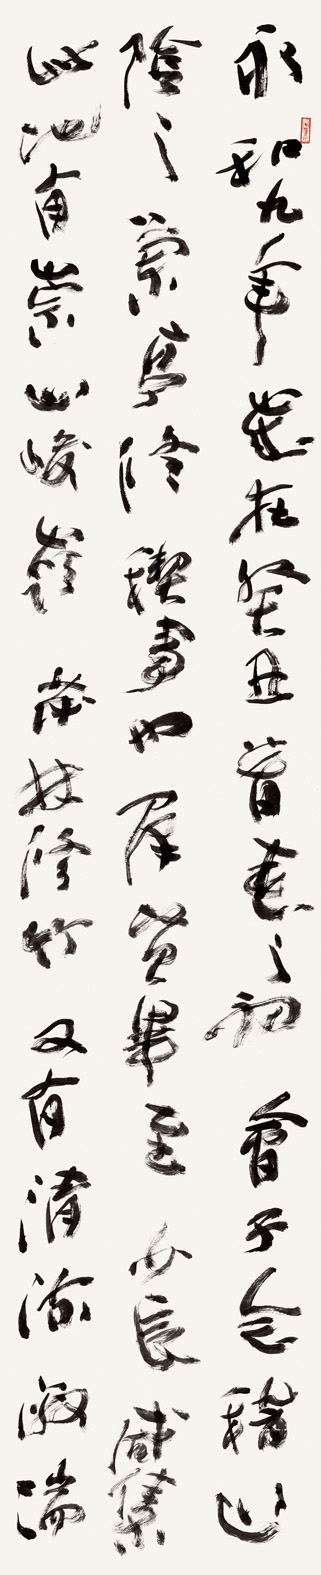 永和九年歲在癸丑暮春之初會于会稽山
陰之蘭亭修禊事也群賢畢至少長咸集
此地有崇山峻嶺茂林修竹又有清流激湍